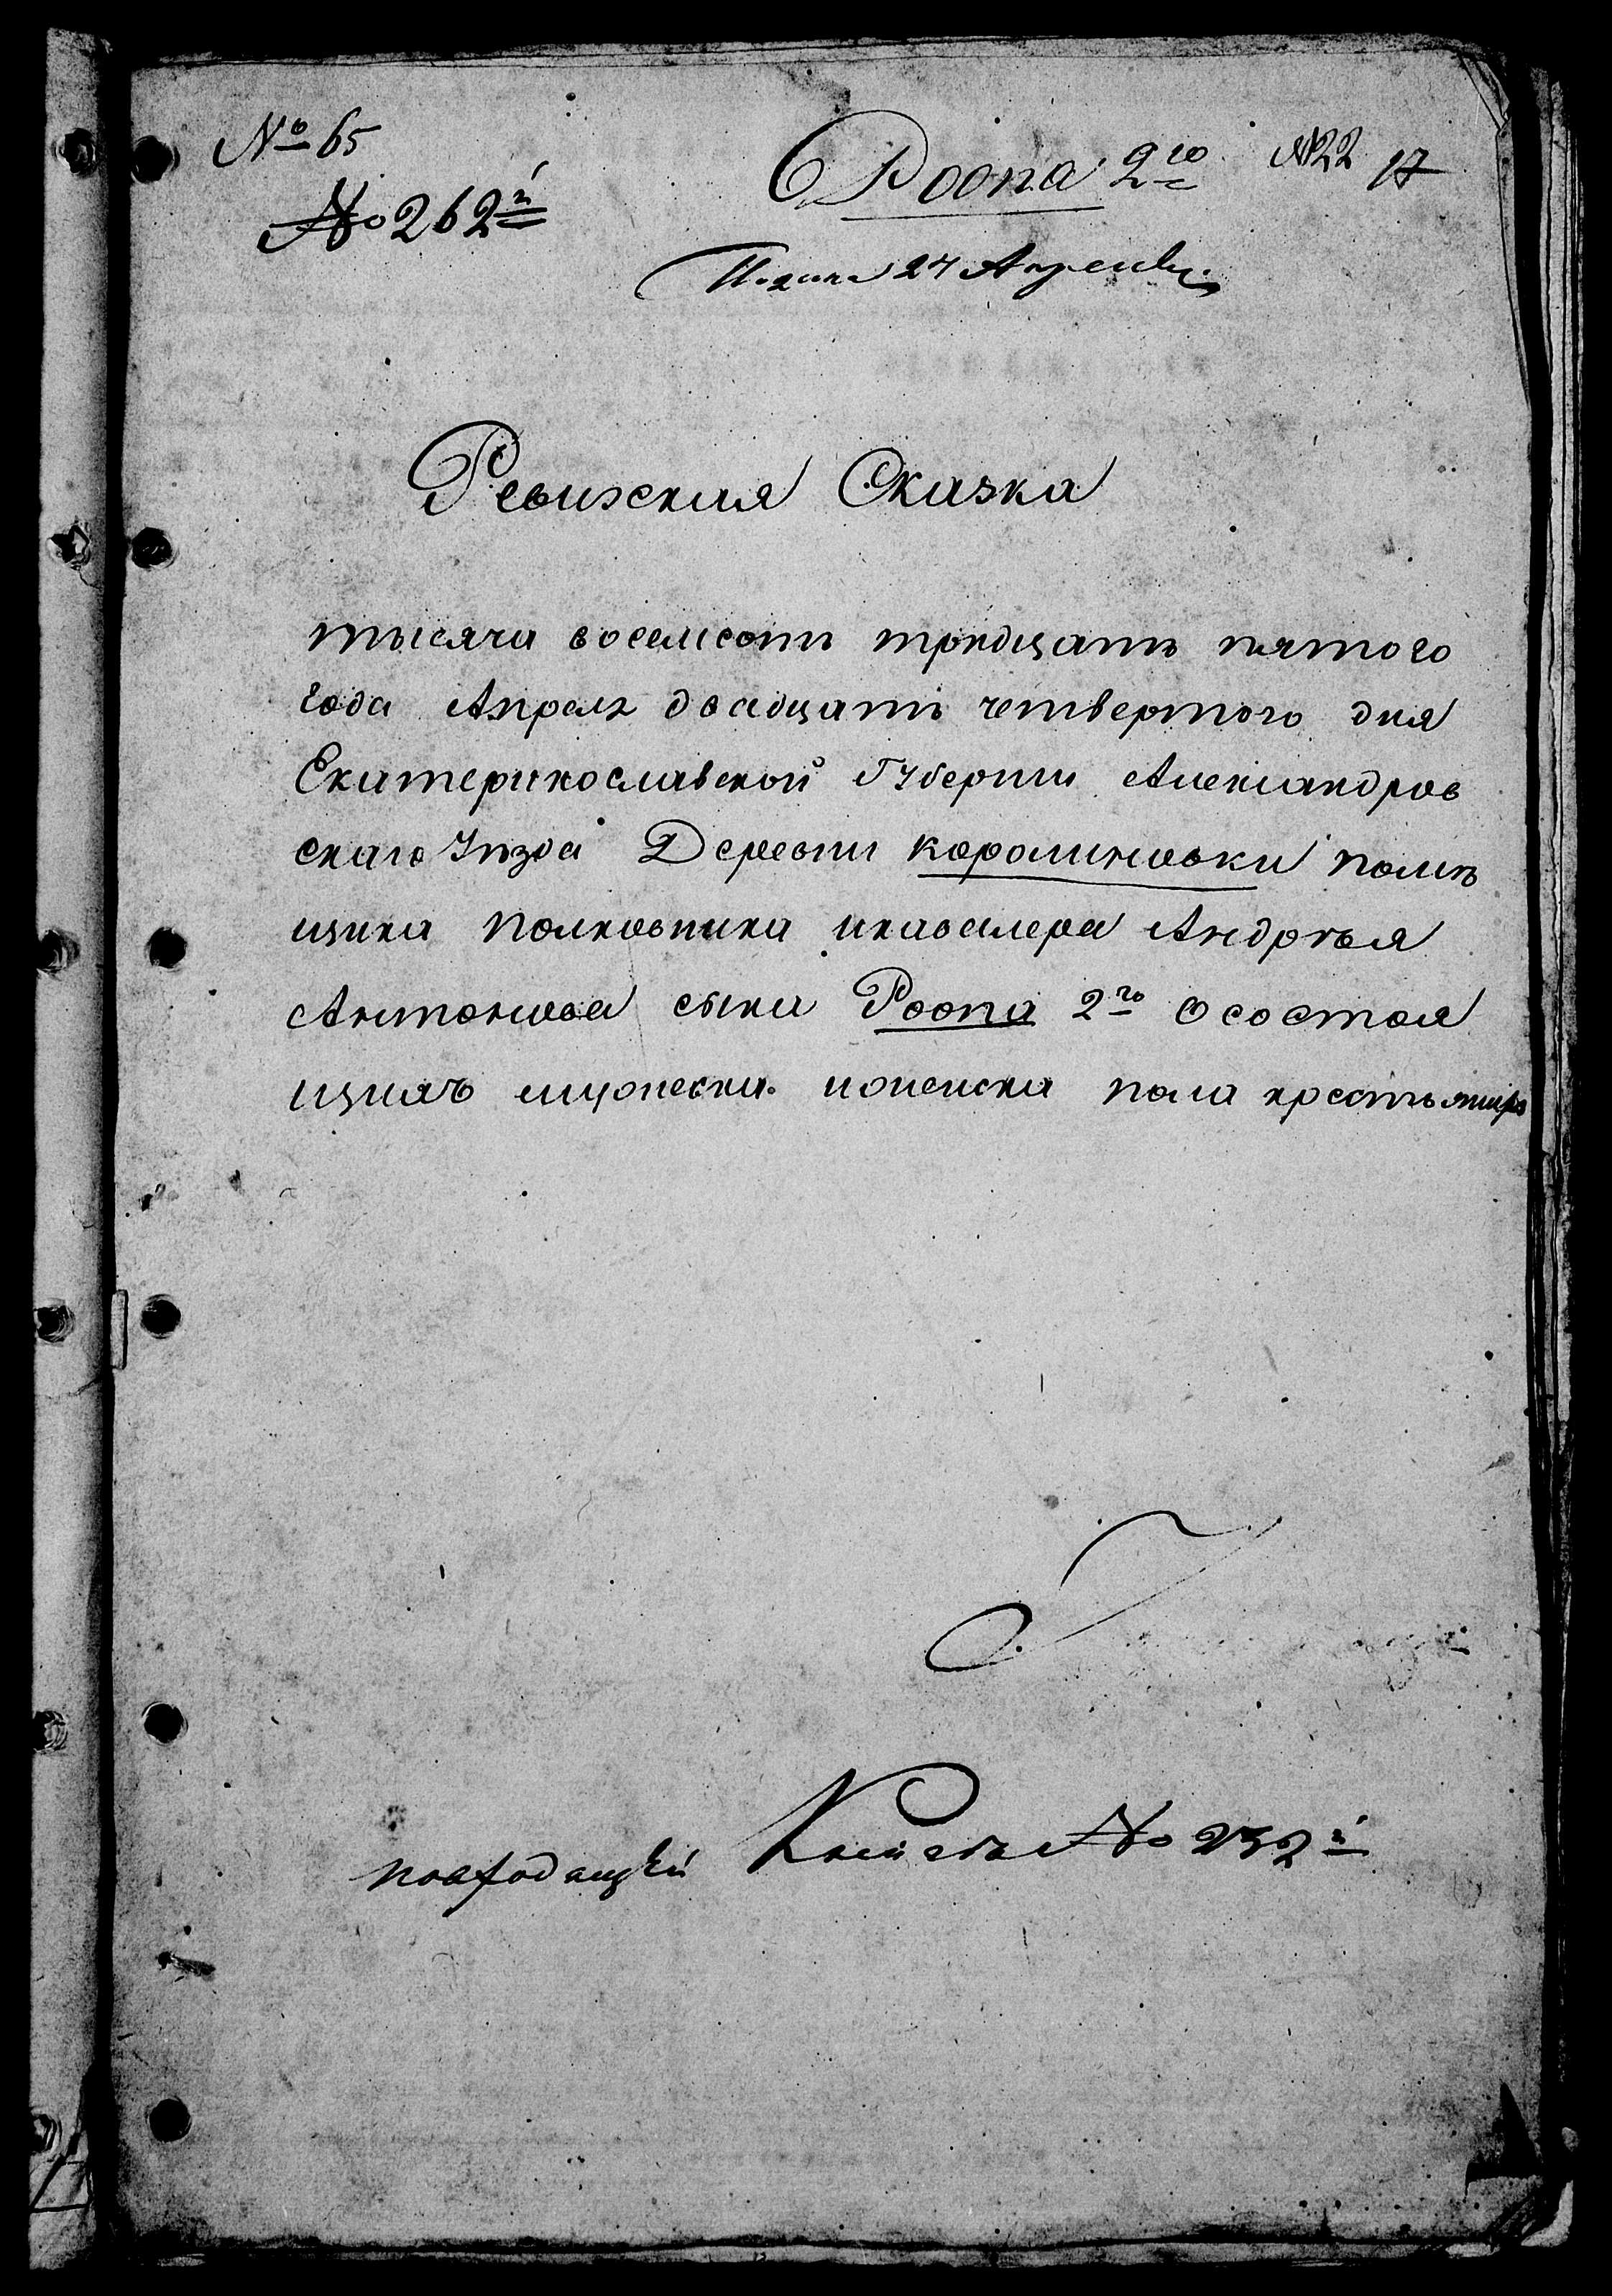 № 65
Роопа 2го №22 17
№ 262й
24 Апреля
Ревизская Сказка
тысяча восемсотъ тридцать пятого
года Апреля двадцать четвертого дня
Екатеринославской Губернии Александров
скаго Уѣзда Деревни Королиновки помѣ
щика Полковника икавалера Андрѣя
Антонова сына Роопа 2го О состоя
щихъ мужеска. иженска пола крестьянѣ
№ 232й